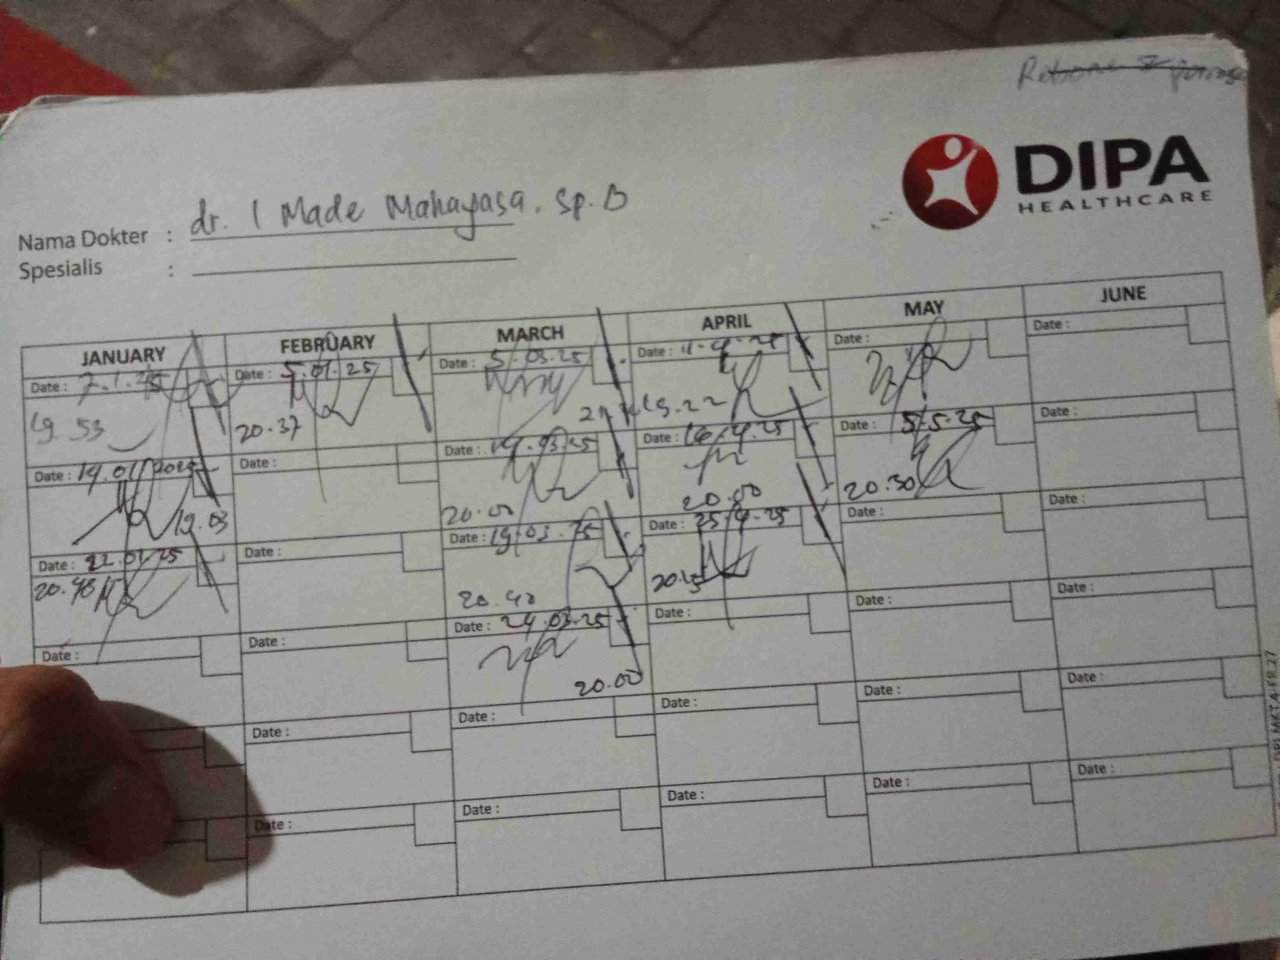 DIPA
HEALTHCARE
Nama Dokter : dr. I Made Mahayasa, Sp.B
Spesialis :
JANUARY FEBRUARY MARCH APRIL MAY JUNE
Date : 7.1.25 Date : 5.01.25 Date : 5.03.25 Date : Date : Date :
19.53 20.37 19.22
Date : 14.01.2025 Date : Date : 14.03.25 Date : 16.4.25 Date : 5/5.25 Date :
19.03 20.00 20.00 20.30
Date : 22.01.25 Date : Date : 19.03.25 Date : 25.4.25 Date : Date :
20.48 20.40 20.15
Date : Date : Date : 24.03.25 Date : Date : Date :
20.00
Date : Date : Date : Date : Date :
Date : Date : Date : Date : Date :